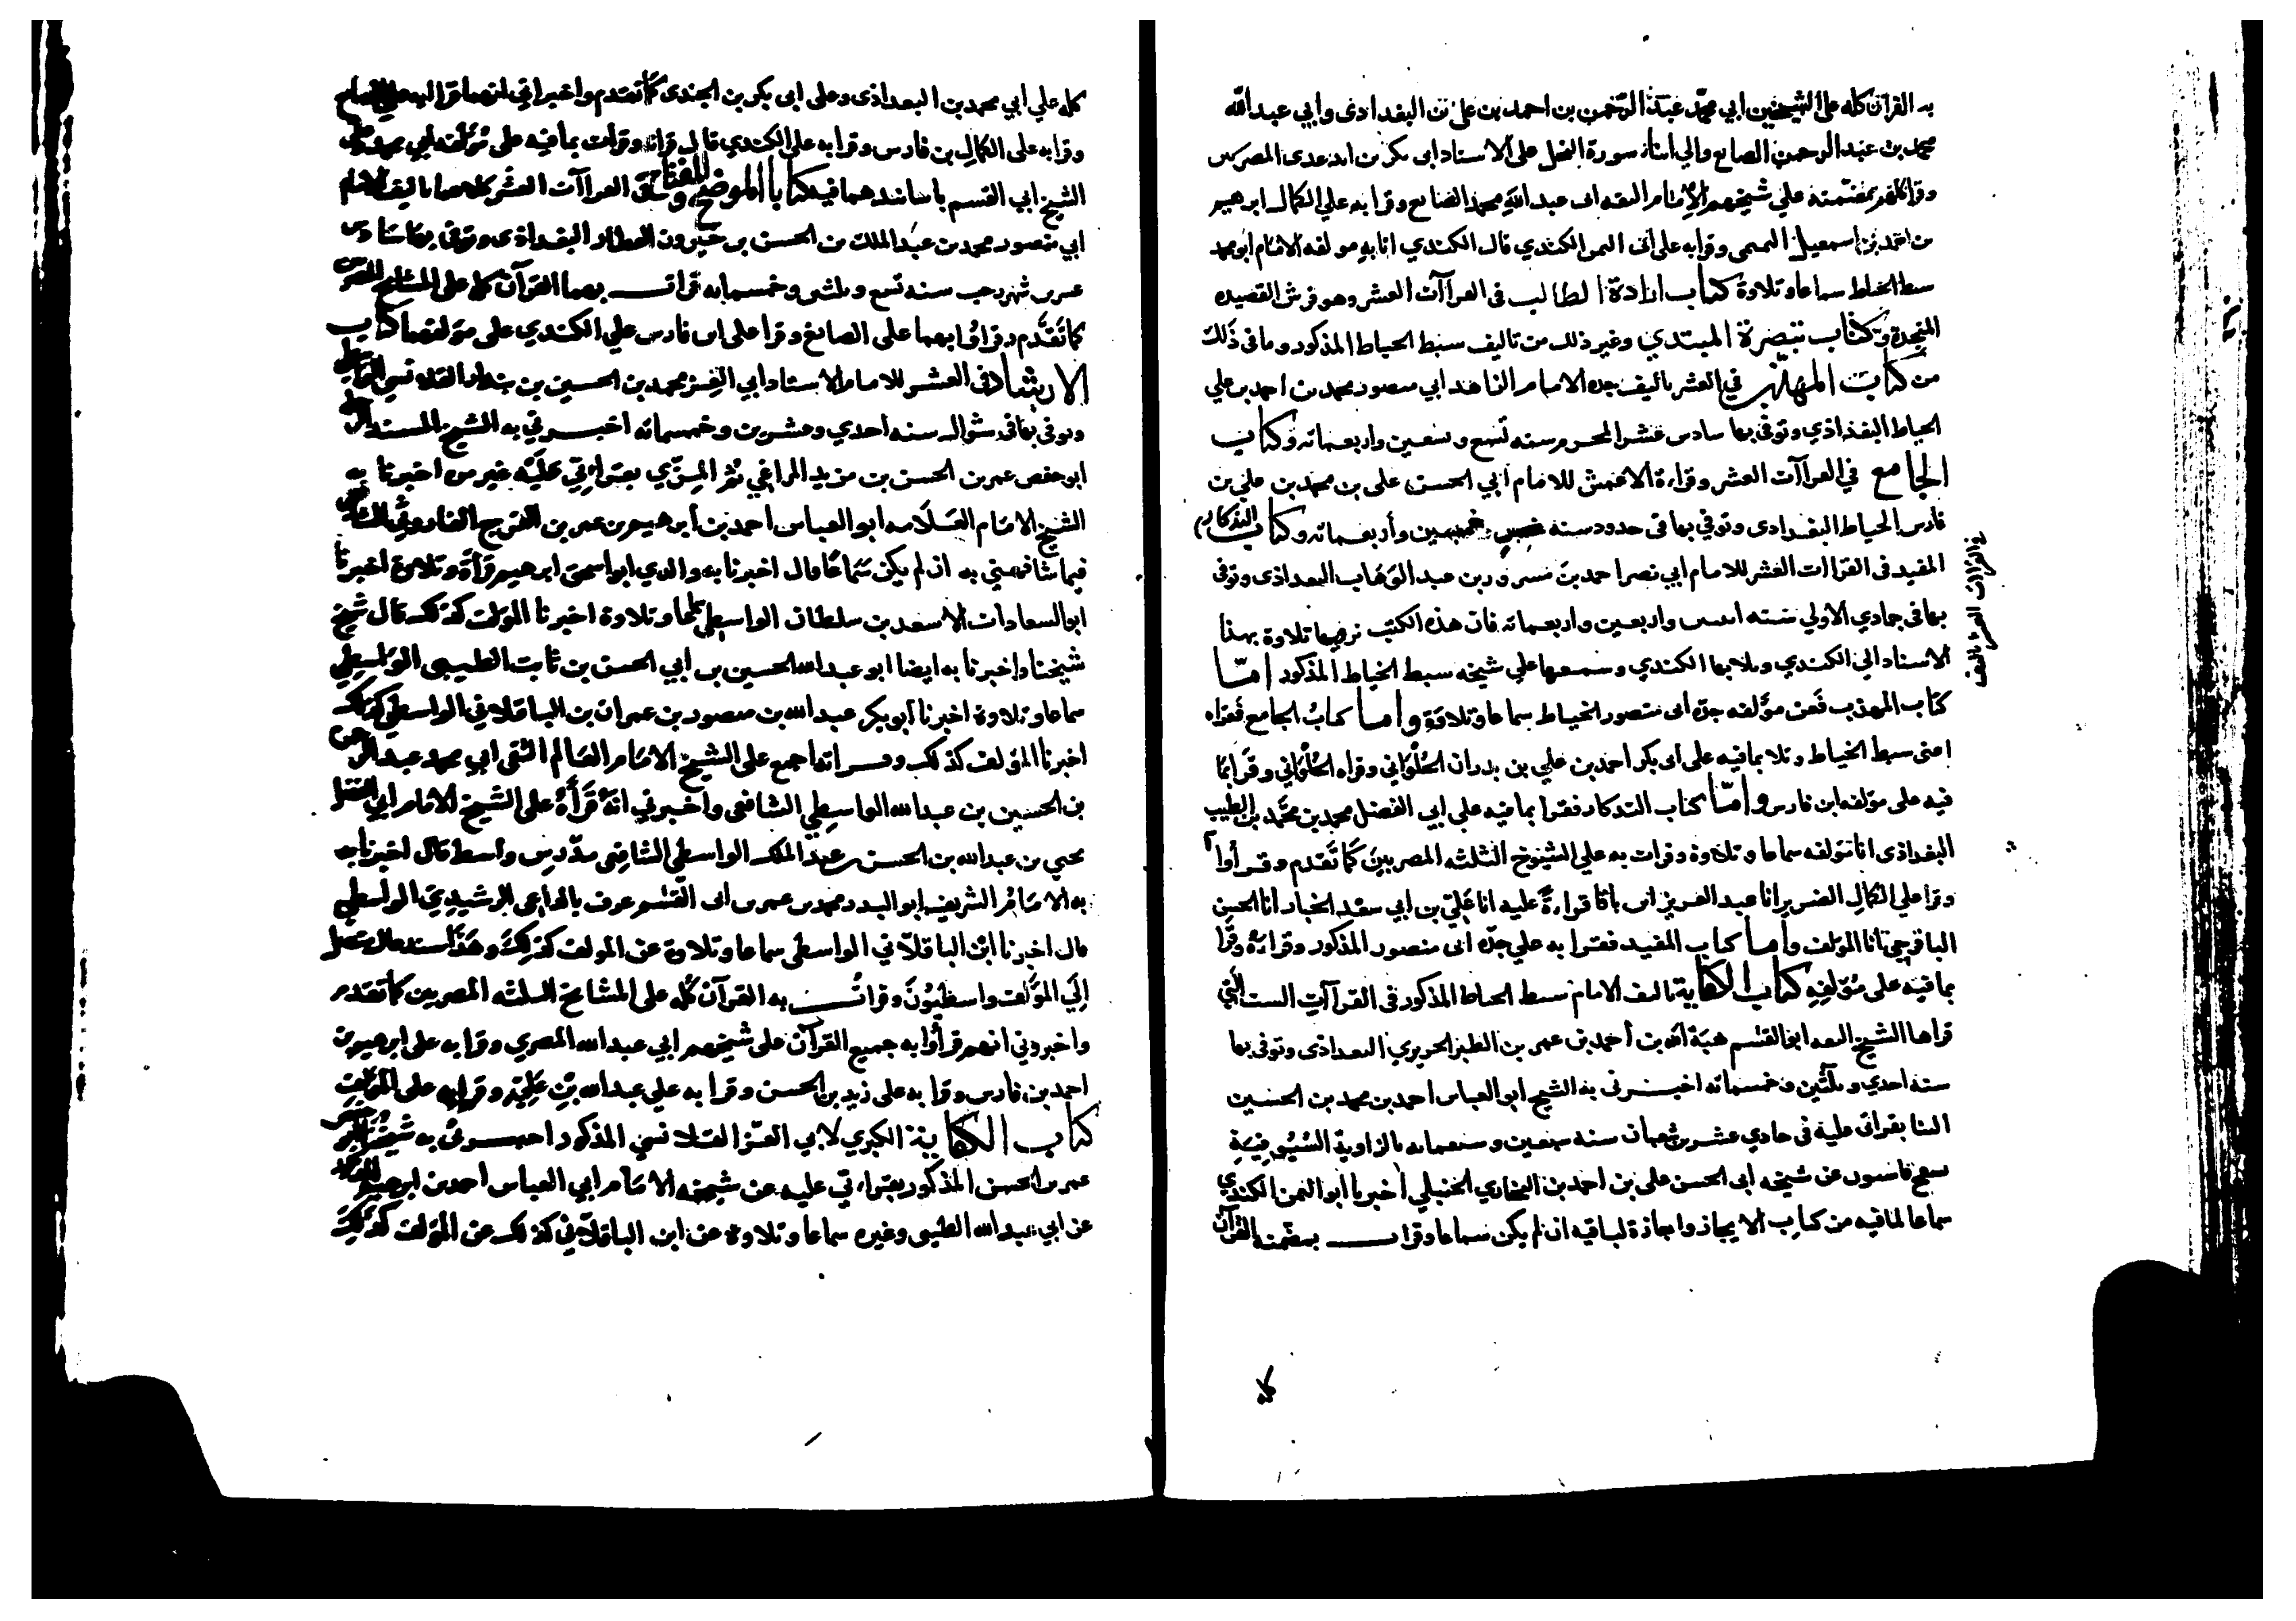 به القرآن كله على الشيخين ابي محمد عبد الرحمن بن احمد بن علي بن البغدادي وابي عبد الله
محمد بن عبد الرحمن الصايغ والي اثناء سورة النحل على الاستاد ابي بكر بن ايدغدي المصريين
وقرا كلهم بمضمنه علي شيخهم الامام التقي ابي عبد الله محمد الصايغ وقرا به علي الكمال ابرهيم
بن احمد بن اسمعيل التميمي وقرا به على ابي اليمن الكندي قال الكندي انا به مولفه الامام ابو محمد
سبط الخياط سماعا وتلاوة كتاب ارادة الطالب في القراآت العشر وهو فرش القصيده
المنجدة وكتاب تبصرة المبتدي وغير ذلك من تاليف سبط الخياط المذكور وما في ذلك
من كتاب المهذب في العشر تاليف جده الامام الزاهد ابي منصور محمد بن احمد بن علي
الخياط البغدادي وتوفي بها سادس عشر المحرم سنه تسع وتسعين واربعمائه وكتاب
الجامع في القراآت العشر وقراءة الاعمش للامام ابي الحسن علي بن محمد بن علي بن
فارس الخياط البغدادي وتوفي بها في حدود سنه خمسين وأربعمائه وكتاب التذكار
المفيد في القراآت العشر للامام ابي نصر احمد بن مسرور بن عبد الوهاب البغدادي وتوفي
في القراات العشر تاليف
بها في جمادي الاولي سنه اثنين واربعين واربعمائه فان هذه الكتب نرويها تلاوة بهذا
الاسناد الي الكندي وتلا بها الكندي وسمعها علي شيخه سبط الخياط المذكور امّا
كتاب المهذب فعن مؤلفه جده ابي منصور الخياط سماعا وتلاوة واما كتاب الجامع فقراه
اعني سبط الخياط وتلا بما فيه على ابي بكر احمد بن علي بن بدران الحلواني وقراه الحلواني وقرا بما
فيه على مؤلفه ابن فارس وامّا كتاب التدكار فقرا بما فيه علي ابي الفضل محمد بن محمد بن الطيب
البغدادي انا مؤلفه سماعا وتلاوة وقرات به علي الشيوخ الثلثه المصريين كما تقدم وقرأوا
وقرا علي الكمال الضرير انا عبد العزيز ابن باقا قراءةً عليه انا علي بن ابي سعد الخباز انا الحسن
الباقرجي انا المؤلف واما كتاب المفيد فقرا به علي جده ابي منصور المذكور وقراءة وقرا
بما فيه على مؤلفه كتاب الكفاية تاليف الامام سبط الخياط المذكور في القراآت الست التي
قراها الشيخ الثقه ابو القسم هبة الله بن أحمد بن عمر بن الطبر الحريري البغدادي وتوفي بها
سنه احدي وثلثين وخمسمائه اخبرني به الشيخ ابو العباس احمد بن محمد بن الحسين
البنا بقراتي عليه في حادي عشرين شعبان سنه سبعين وسبعمايه بالزاوية السيوفية
بسفح قاسيون عن شيخه ابي الحسن علي بن احمد بن البخاري الحنبلي اخبرنا ابو اليمن الكندي
سماعا لما فيه من كتاب الايجاز واجازة لباقيه ان لم يكن سماعا وقرات بمضمنه القرآن
كله
كله علي ابي محمد بن البغدادي وعلى ابي بكر بن الجندي كما تقدم واخبراني انهما قرا به على الصايغ
وقرا به على الكمال بن فارس وقرا به علي الكندي قال قراته وقرات بما فيه على مؤلفه ابي محمد وعلى
الشيخ ابي القسم باسانيدهما فيه كتابا الموضح والمفتاح في القراآت العشر كلاهما تاليف الامام
ابي منصور محمد بن عبد الملك بن الحسن بن خيرون العطار البغدادي وتوفي بها سادس
عشرين شهر رجب سنه تسع وثلثين وخمسمايه قرات بهما القرآن كله على المشايخ المصريين
كما تقدم وقراوا بهما على الصايغ وقرا على ابن فارس علي الكندي على مؤلفهما كتاب
الارشاد في العشر للامام الاستاد ابي العز محمد بن الحسين بن بندار القلانسي الواسطي
وتوفي بها في شوال سنه احدي وعشرين وخمسمائه اخبرني به الشيخ المسند
ابو حفص عمر بن الحسن بن مزيد المراغي ثم المزي بقراءتي عليه غير من اخبرنا به
الشيخ الامام العلامه ابو العباس احمد بن ابرهيم بن عمر بن الفرج الفاروثي الشافعي
فيما شافهني به ان لم يكن سماعا قال اخبرنا به والدي ابو اسحق ابرهيم قرأة وتلاوة اخبرنا
ابو السعادات الاسعد بن سلطان الواسطي سماعا وتلاوة اخبرنا المؤلف كذلك قال شيخ
شيخنا واخبرنا به ايضا ابو عبد الله الحسين بن ابي الحسن بن ثابت الطيبي الواسطي
سماعا وتلاوة اخبرنا أبو بكر عبد الله بن منصور بن عمران بن الباقلاني الواسطي كذلك
اخبرنا المؤلف كذلك وقراته اجمع على الشيخ الامام العالم التقي ابي محمد عبد الرحمن
بن الحسين بن عبد الله الواسطي الشافعي واخبرني انه قرأه على الشيخ الامام ابي الفضل
يحيى بن عبد الله بن الحسن بن عبد الملك الواسطي الشافعي مدرس واسط قال اخبرنا به
به الامام الشريف ابو البدر محمد بن عمر بن ابي القسم عرف بالداعي الرشيدي الواسطي
قال اخبرنا ابن الباقلاني الواسطي سماعا وتلاوة عن المولف كذلك وهذا سند عال متصل
إلي المؤلف واسطيّون وقرات به القرآن كله على المشايخ الثلثه المصريين كما تقدم
واخبروني انهم قرأوا به جميع القرآن على شيخهم ابي عبد الله المصري وقرا به على ابرهيم بن
احمد بن فارس وقرا به على زيد بن الحسن وقرا به علي عبد الله بن علي وقرا به على المؤلف
كتاب الكفاية الكبري لابي العز القلانسي المذكور اخبرني به شيخنا ابو حفص
عمر بن الحسن المذكور بقراءتي عليه عن شيخه الامام ابي العباس احمد بن ابرهيم
عن ابي عبد الله الطيبي وغيره سماعا وتلاوة عن ابن الباقلاني كذلك عن المؤلف كذلك